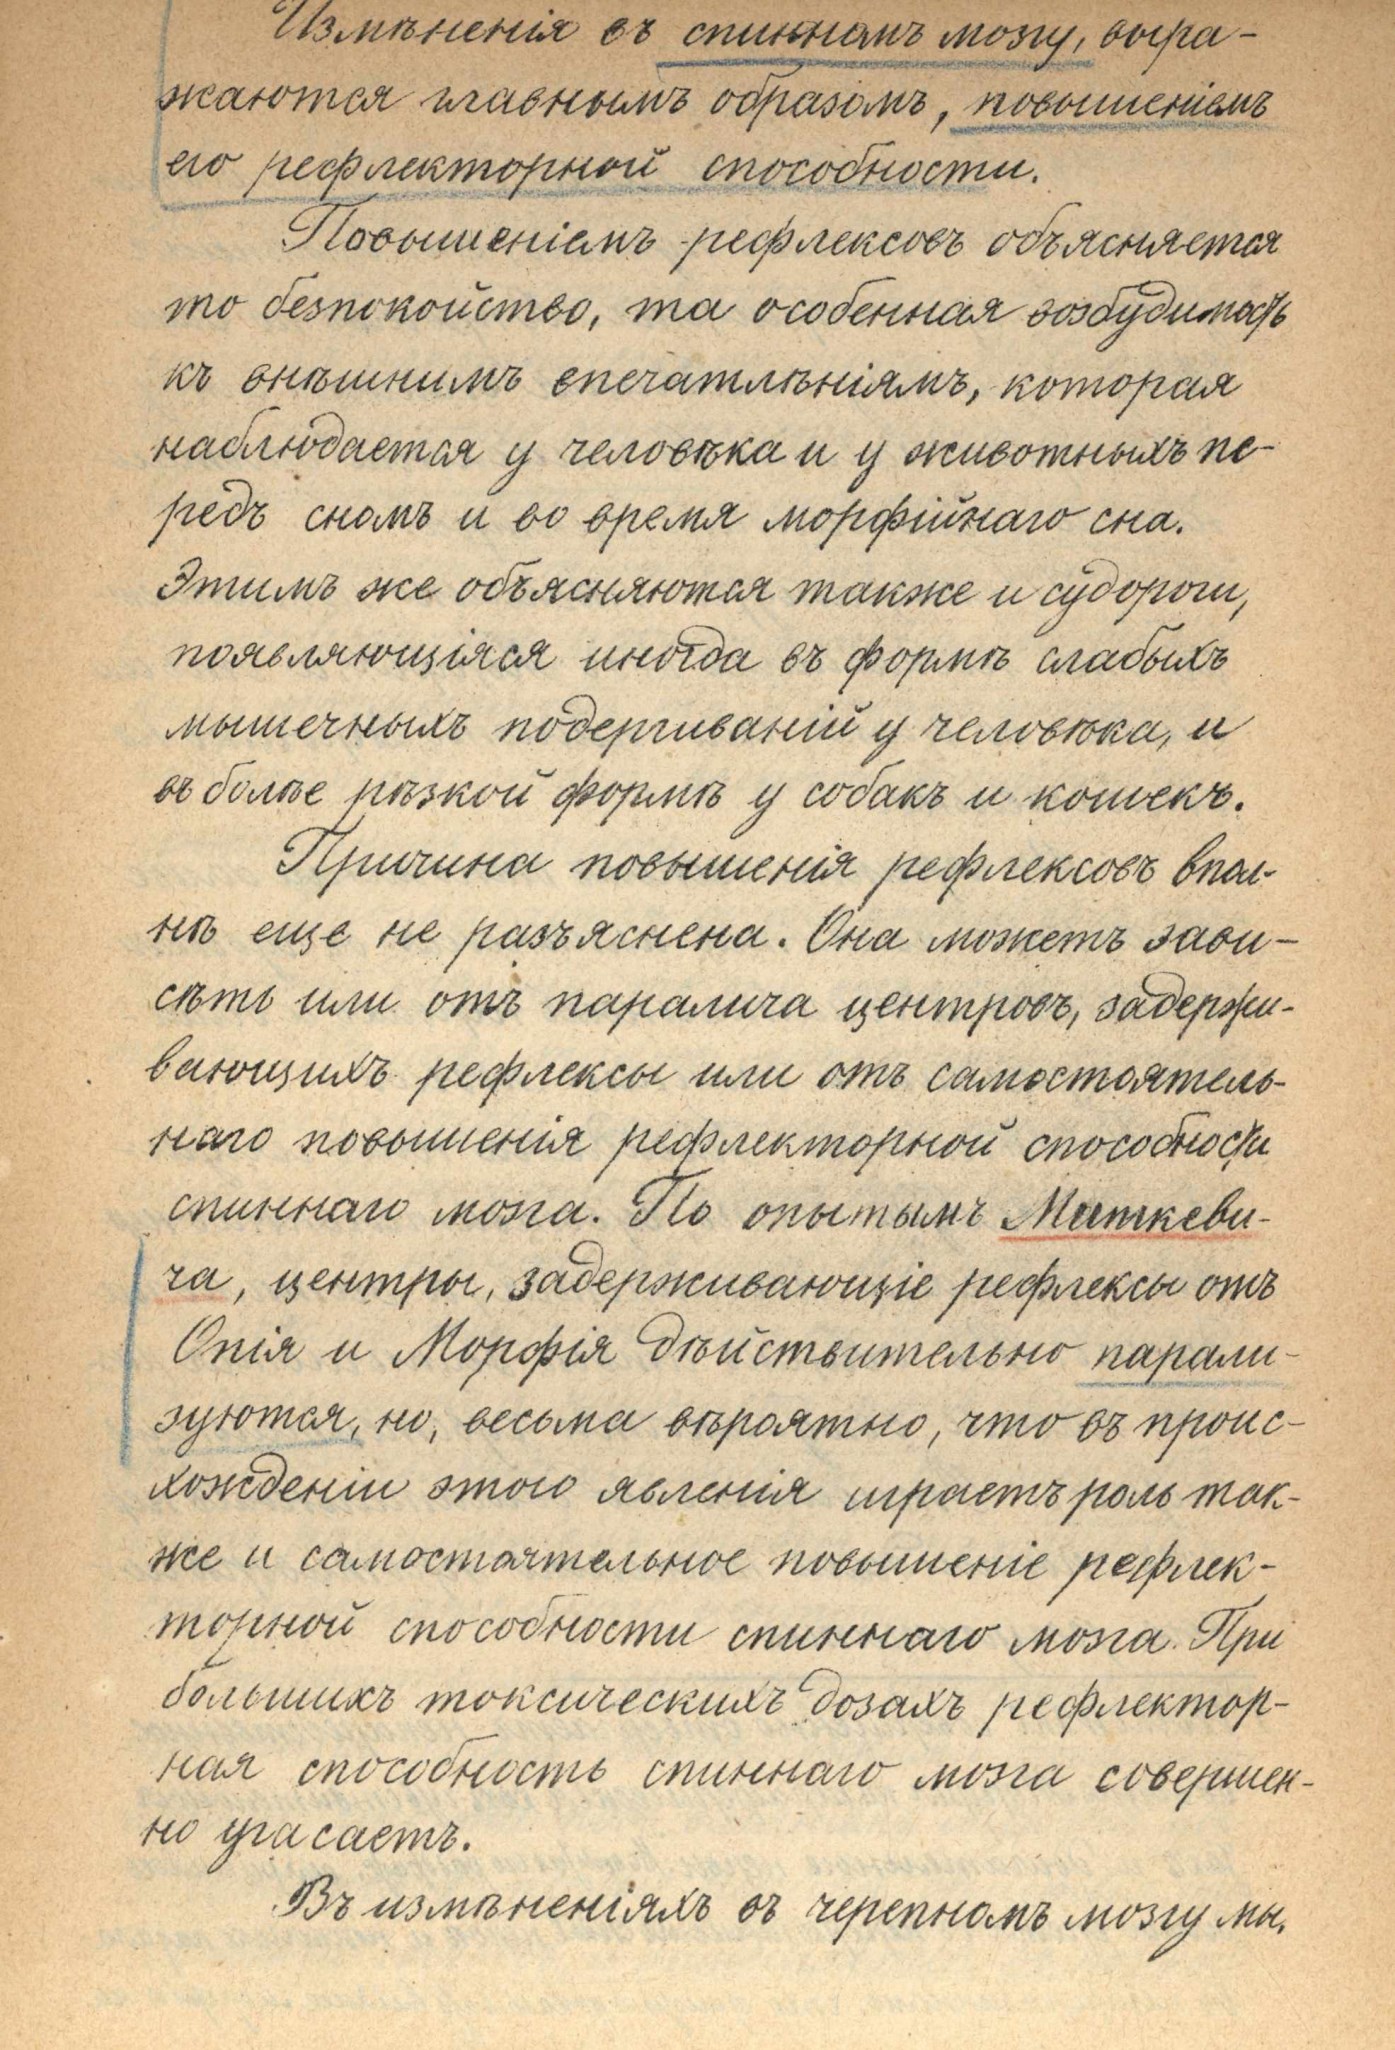 Измѣненія въ спинномъ мозгу, выра-
жаются главнымъ образомъ, повышеніемъ
его рефлекторной способности.
Повышеніемъ рефлексовъ объясняется
то безпокойство, та особенная возбудимость
къ внѣшнимъ впечатлѣніямъ, которая
наблюдается у человѣка и у животныхъ пе-
редъ сномъ и во время морфійнаго сна.
Этимъ же объясняются также и судороги,
появляющіяся иногда въ формѣ слабыхъ
мышечныхъ подергиваній у человѣка, и
въ болѣе рѣзкой формѣ у собакъ и кошекъ.
Причина повышенія рефлексовъ впол-
нѣ еще не разъяснена. Она можетъ зави-
сѣть или отъ паралича центровъ, задержи-
вающихъ рефлексы или отъ самостоятель-
наго повышенія рефлекторной способности
спиннаго мозга. По опытымъ Миткеви-
ча, центры, задерживающіе рефлексы отъ
Опія и Морфія дѣйствительно парали-
зуются, но, весьма вѣроятно, что въ проис-
хожденіи этого явленія играетъ роль так-
же и самостоятельное повышеніе рефлек-
торной способности спиннаго мозга. При
большихъ токсическихъ дозахъ рефлектор-
ная способность спиннаго мозга совершен-
но угасаетъ.
Въ измѣненіяхъ въ черепномъ мозгу мы,